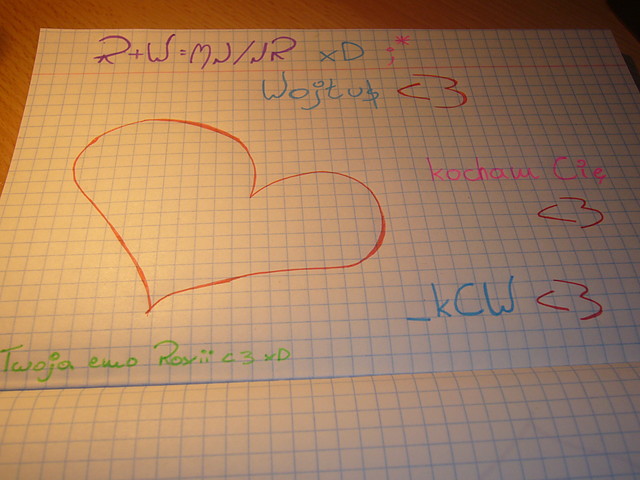 R+W=MN/NR xD ;*
Wojtuś <3
kocham Cię
<3
_kCW <3
Twoja emo Roxii <3 xD